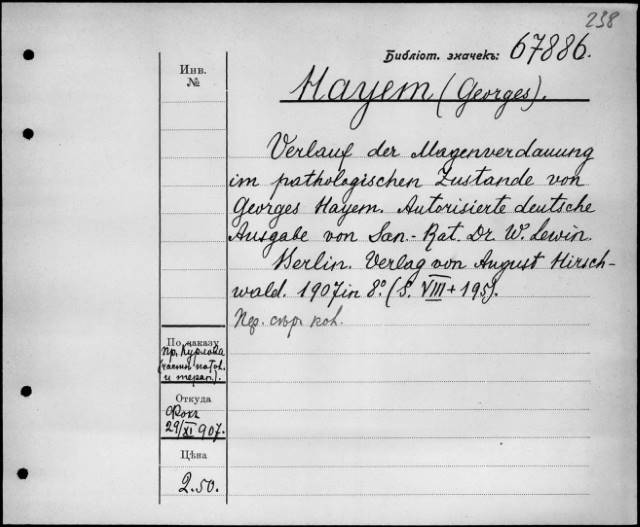 238
Библіот. значекъ: 67886.
Инв.
№
Hayem (Georges).
Verlauf der Magenverdauung
im pathologischen Zustande von
Georges Hayem. Autorisierte deutsche
Ausgabe von San.-Rat. Dr. W. Lewin.
Berlin. Verlag von August Hirsch-
wald. 1907 in 8º. (S. VIII + 195).
Пер.
По заказу
пр. Курлова
и терап.).
Откуда
Фокъ
29/XI 907.
Цѣна
2.50.